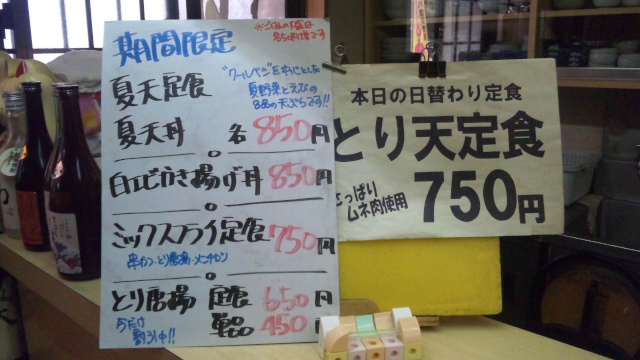 期間限定
夏天定食
"クールベジ"を中心とした
夏野菜とえびの
8品の天ぷらです!!
夏天丼 各850円
白エビかき揚げ丼 850円
ミックスフライ定食 750円
串カツ、とり唐揚、メンチカツ
とり唐揚 定食 650円
単品 450円
割引中!!
本日の日替わり定食
とり天定食
さっぱり
ムネ肉使用
750円